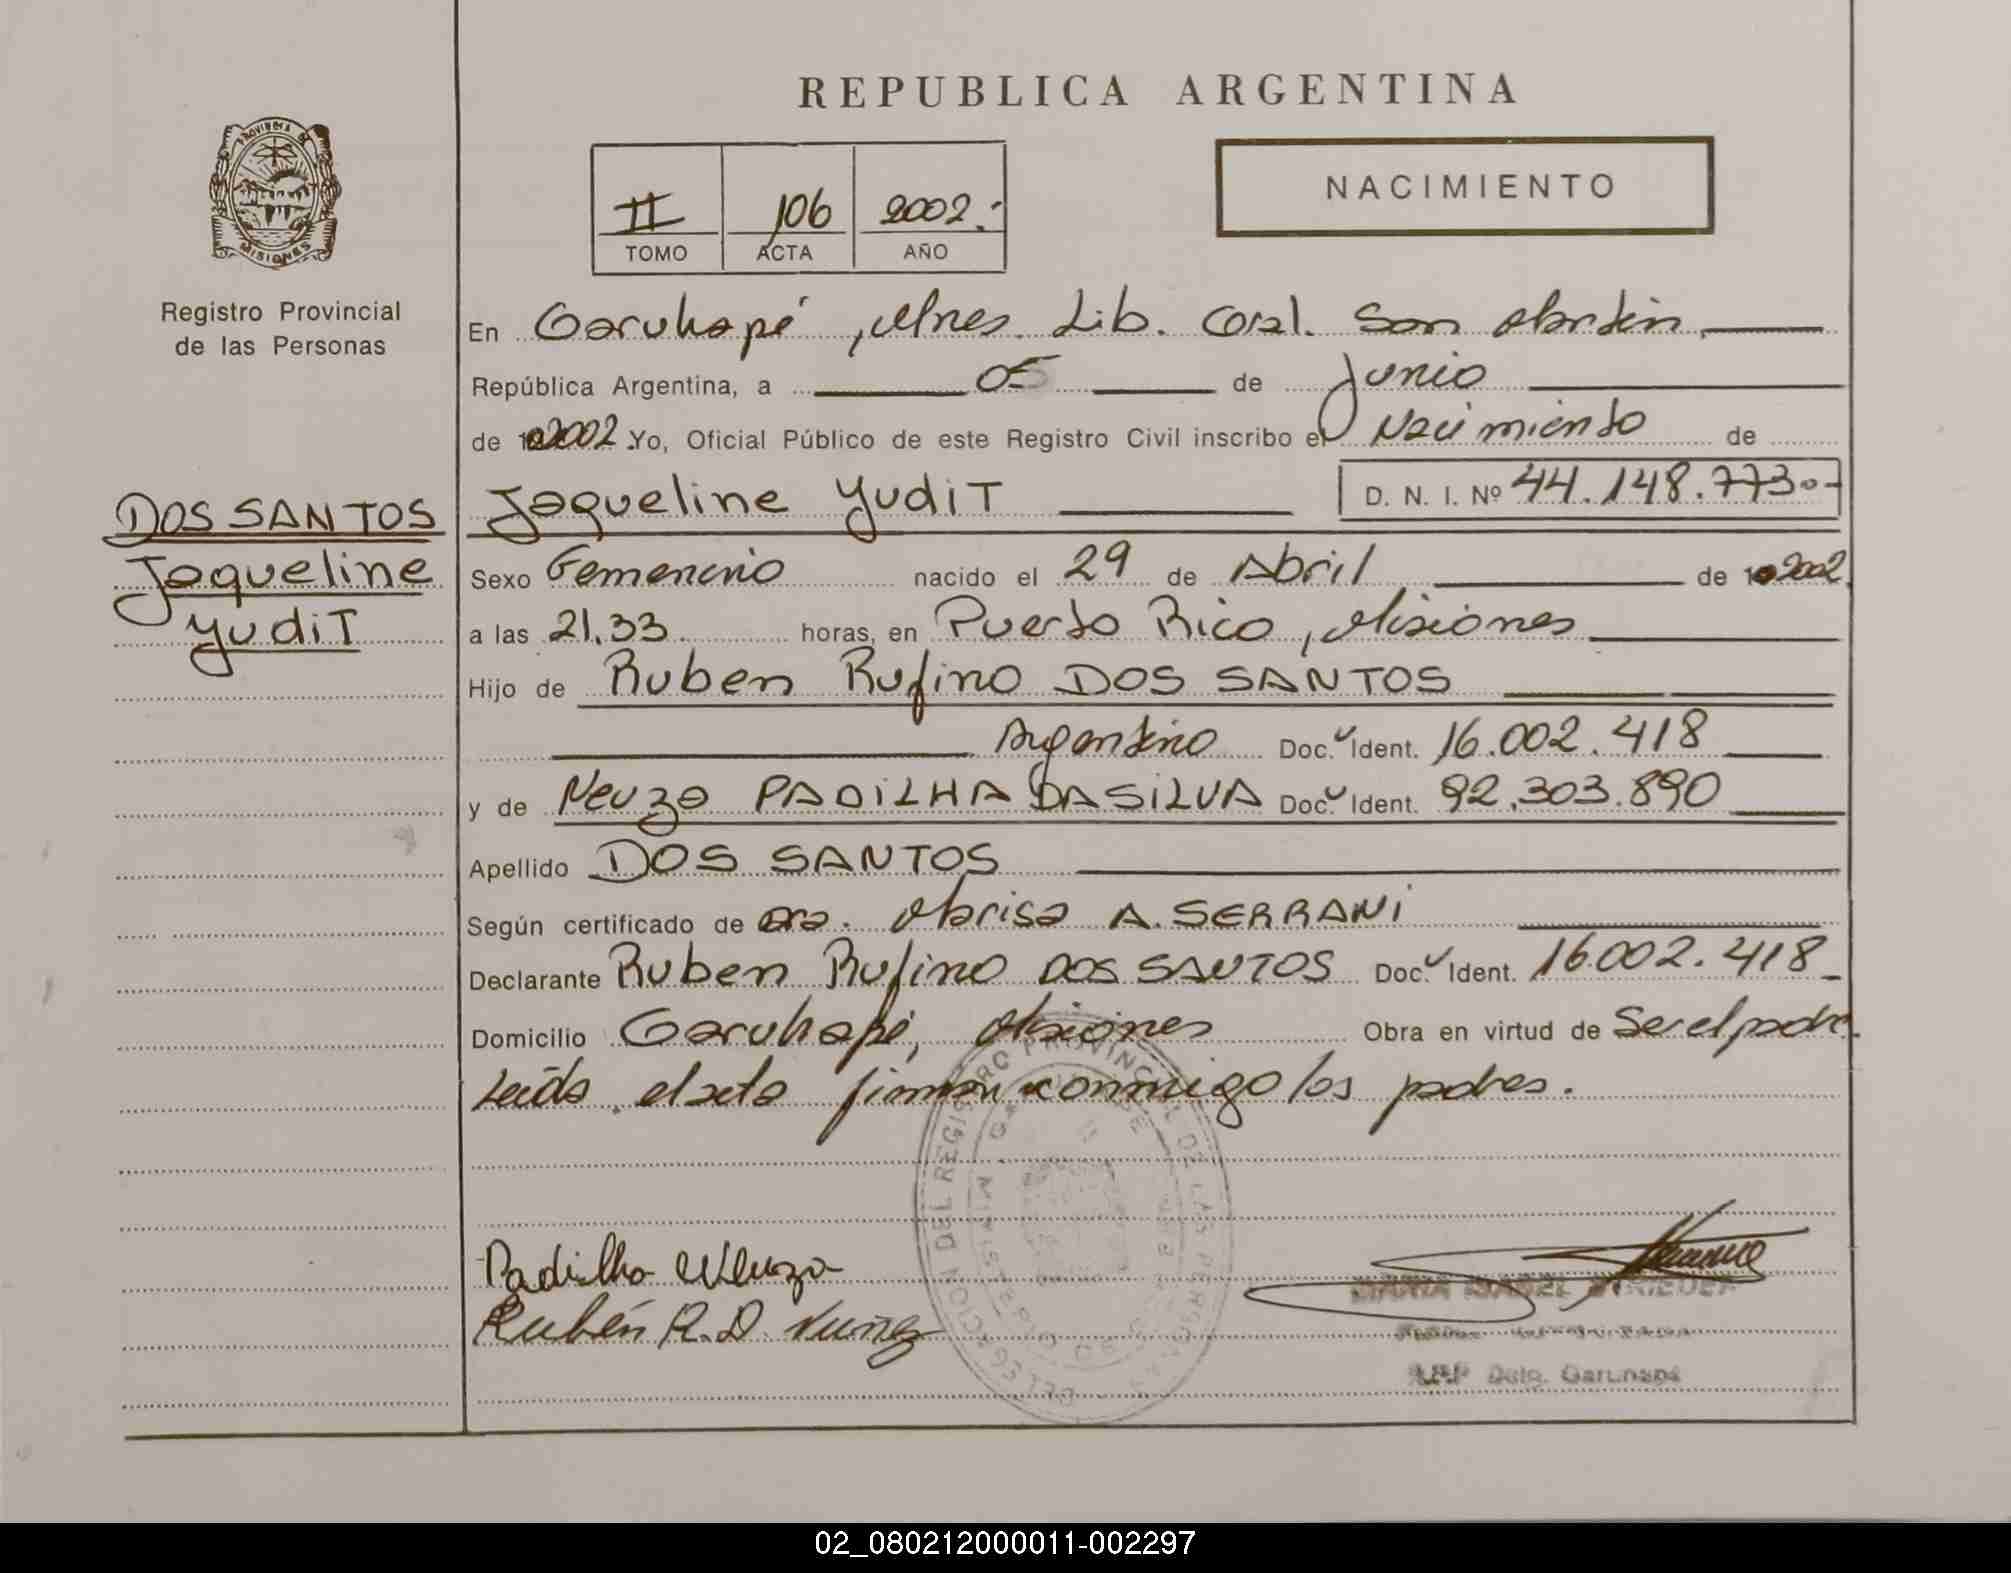 REPUBLICA ARGENTINA
PROVINCIA DE
MISIONES
Registro Provincial
de las Personas
II 106 2002.-
TOMO ACTA AÑO
NACIMIENTO
En Garuhapé, Mnes. Lib. Gral. San Martín,
República Argentina, a 05 de Junio
de 2002 Yo, Oficial Público de este Registro Civil inscribo el Nacimiento de
DOS SANTOS
Jaqueline
Yudit
Jaqueline Yudit D. N. I. Nº 44.148.773.-
Sexo Femenino nacido el 29 de Abril de 2002
a las 21.33 horas, en Puerto Rico, Misiones
Hijo de Ruben Rufino DOS SANTOS
Argentino Doc. Ident. 16.002.418
y de Neuza PADILHA DA SILVA Doc. Ident. 92.303.890
Apellido DOS SANTOS
Según certificado de Dra. Marisa A. SERRANI
Declarante Ruben Rufino DOS SANTOS Doc. Ident. 16.002.418
Domicilio Garuhapé, Misiones Obra en virtud de Ser el padre.
Leída el acta firman conmigo los padres.
DELEGACION DEL REGISTRO PROVINCIAL DE LAS PERSONAS
MINISTERIO DE GOBIERNO
Padilha Neuza
Rubén R. D. Nuñez
MARIA ISABEL
Delg. Garuhapé
02_080212000011-002297